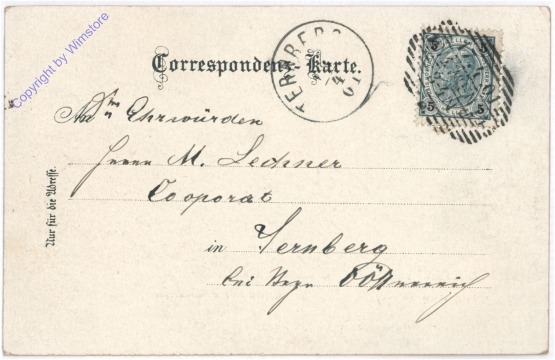 Copyright by Wimstore
Correspondenz-Karte.
TERNBERG
5 5
5 5
An Ehrwürden
Herrn M. Lechner
Cooporat
in Ternberg
bei Steyr
Nur für die Adresse.